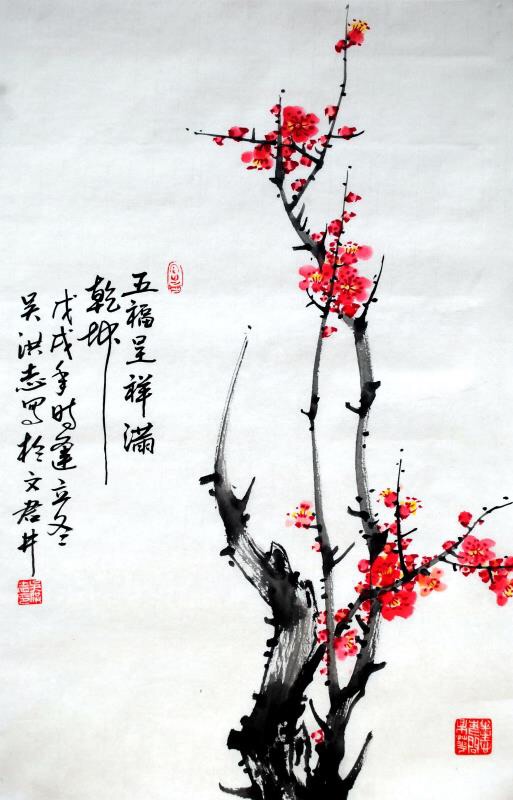 五福呈祥满
乾坤
戊戌年时逢立冬
吴洪志写于文君井